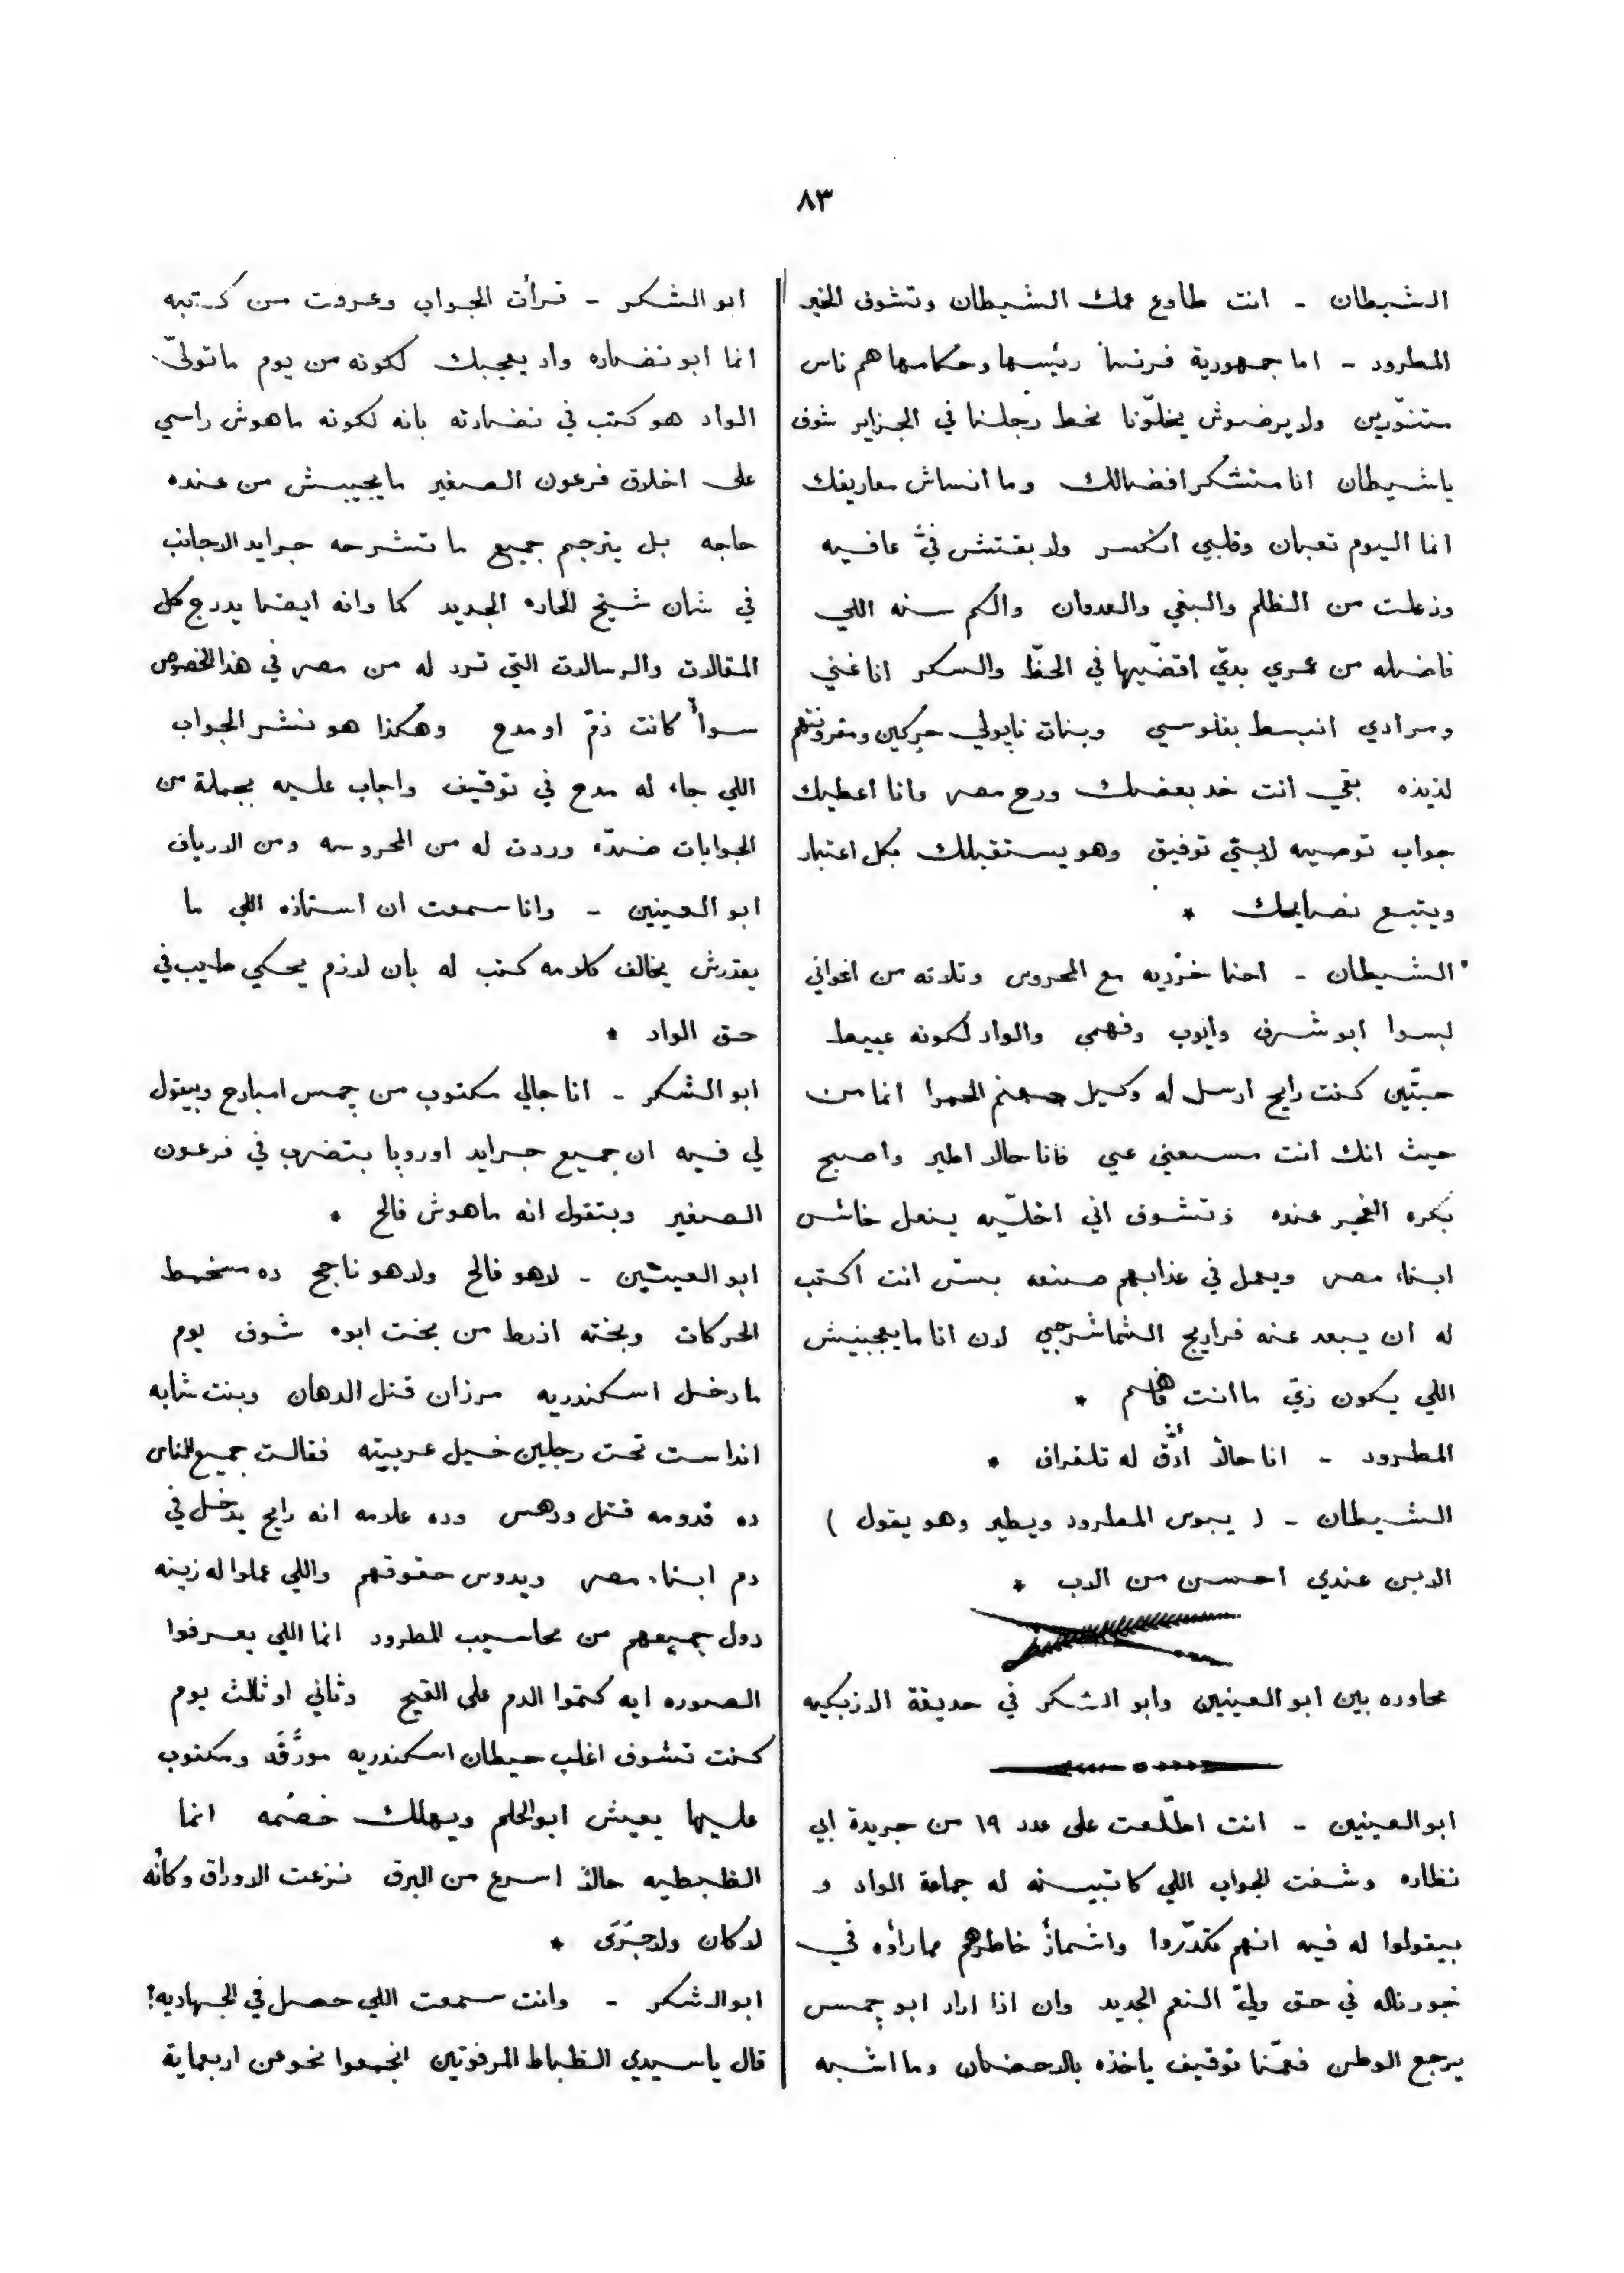 ٨٣
الشيطان - انت طاوع عمك الشيطان وتشوف الخير
المطرود - اما جمهورية فرنسا رئيسها وحكامها هم ناس
متنوّرين ولا يرضوش يخلّونا نحط رجلنا في الجزاير شوف
ياشيطان انا متشكر افضالك وما انساش معاريفك
انما اليوم تعبان وقلبي انكسر ولا بقتش فيّ عافيه
وزعلت من الظلم والبغي والعدوان والكم سنه اللي
فاضله من عمري بدّي اقضّيها في الحظّ والسكر انا غني
ومرادي انبسط بفلوسي وبنات نابولي حركين ومقرونتهم
لذيذه بقى انت خد بعضك ورح مصر وانا اعطيك
جواب توصيه لابني توفيق وهو يستقبلك بكل اعتبار
ويتبع نصايحك *
الشيطان - احنا خرّديه مع المحروس وتلاته من اخواني
لبسوا ابو شرف وايوب وفهمي والواد لكونه عبيط
حبتين كنت رايح ارسل له وكيل جهنم الحمرا انما من
حيث انك انت مسمعني عمي فانا حالا اطير واصبح
بكره الفجر عنده وتشوف اني اخلّيه ينعل خاش
ابناء مصر ويعمل في عذابهم صنعه بسّ انت اكتب
له ان يبعد عنه فراريج الشماشرجي لان انا ما يعجبنيش
اللي يكون زيّ ما انت فاهم *
المطرود - انا حالاً أدقّ له تلغراف *
الشيطان - ( يبوس المطرود ويطير وهو يقول )
الابن عندي احسن من الاب *
محاوره بين ابو العينين وابو الشكر في حديقة الازبكيه
ابو العينين - انت اطّلعت على عدد ١٩ من جريدة ابي
نظاره وشفت الجواب اللي كاتبينه له جماعة الواد و
بيقولوا له فيه انهم تكدّروا واشمأزّ خاطرهم مما رأوه في
جورناله في حق وليّ النعم الجديد وان اذا اراد ابو جمس
يرجع الوطن فعمّنا توقيف ياخذه بالاحضان وما اشبه
ابو الشكر - قرأت الجواب وعرفت من كتبه
انما ابو نضاره واد يعجبك لكونه من يوم ما تولّى
الواد هو كتب في نضارته بانه لكونه ماهوش راسي
على اخلاق فرعون الصغير ما يجيبش من عنده
حاجه بل يترجم جميع ما تشرحه جرايد الاجانب
في شان شيخ الحاره الجديد كما وانه ايضا يدرج كل
المقالات والرسالات التي ترد له من مصر في هذا الخصوص
سوأ كانت ذمّ او مدح وهكذا هو نشر الجواب
اللي جاء له مدح في توقيف واجاب عليه بجملة من
الجوابات ضدّه وردت له من المحروسه ومن الارياف
ابو العينين - وانا سمعت ان استاذه اللي ما
يقدرش يخالف كلامه كتب له بأن لازم يحكي طيب في
حق الواد *
ابو الشكر - انا جالي مكتوب من جمس امبارح وبيقول
لي فيه ان جميع جرايد اوروبا بتضرب في فرعون
الصغير وبتقول انه ماهوش فالح *
ابو العينين - لاهو فالح ولاهو ناجح ده مسخمط
الحركات وبخته ازرط من بخت ابوه شوف يوم
ما دخل اسكندريه مرزان قتل الدهان وبنت شابه
انداست تحت رجلين خيل عربيته فقالت جميع الناس
ده قدومه قتل ودهس وده علامه انه رايح يدخل في
دم ابناء مصر ويدوس حقوقهم واللي عملوا له زينه
دول جميعهم من محاسيب المطرود انما اللي يعرفوا
الصوره ايه كتموا الدم على القيح وثاني او ثالث يوم
كنت تشوف اغلب حيطان اسكندريه مورَّقَه ومكتوب
عليها يعيش ابو الحلم ويهلك خصمه انما
الظبطيه حالاً اسرع من البرق نزعت الاوراق وكأنه
لا كان ولا جَرَى *
ابو الشكر - وانت سمعت اللي حصل في الجهاديه؟
قال يا سيدي الظباط المرفوتين اتجمعوا نحو من اربعماية